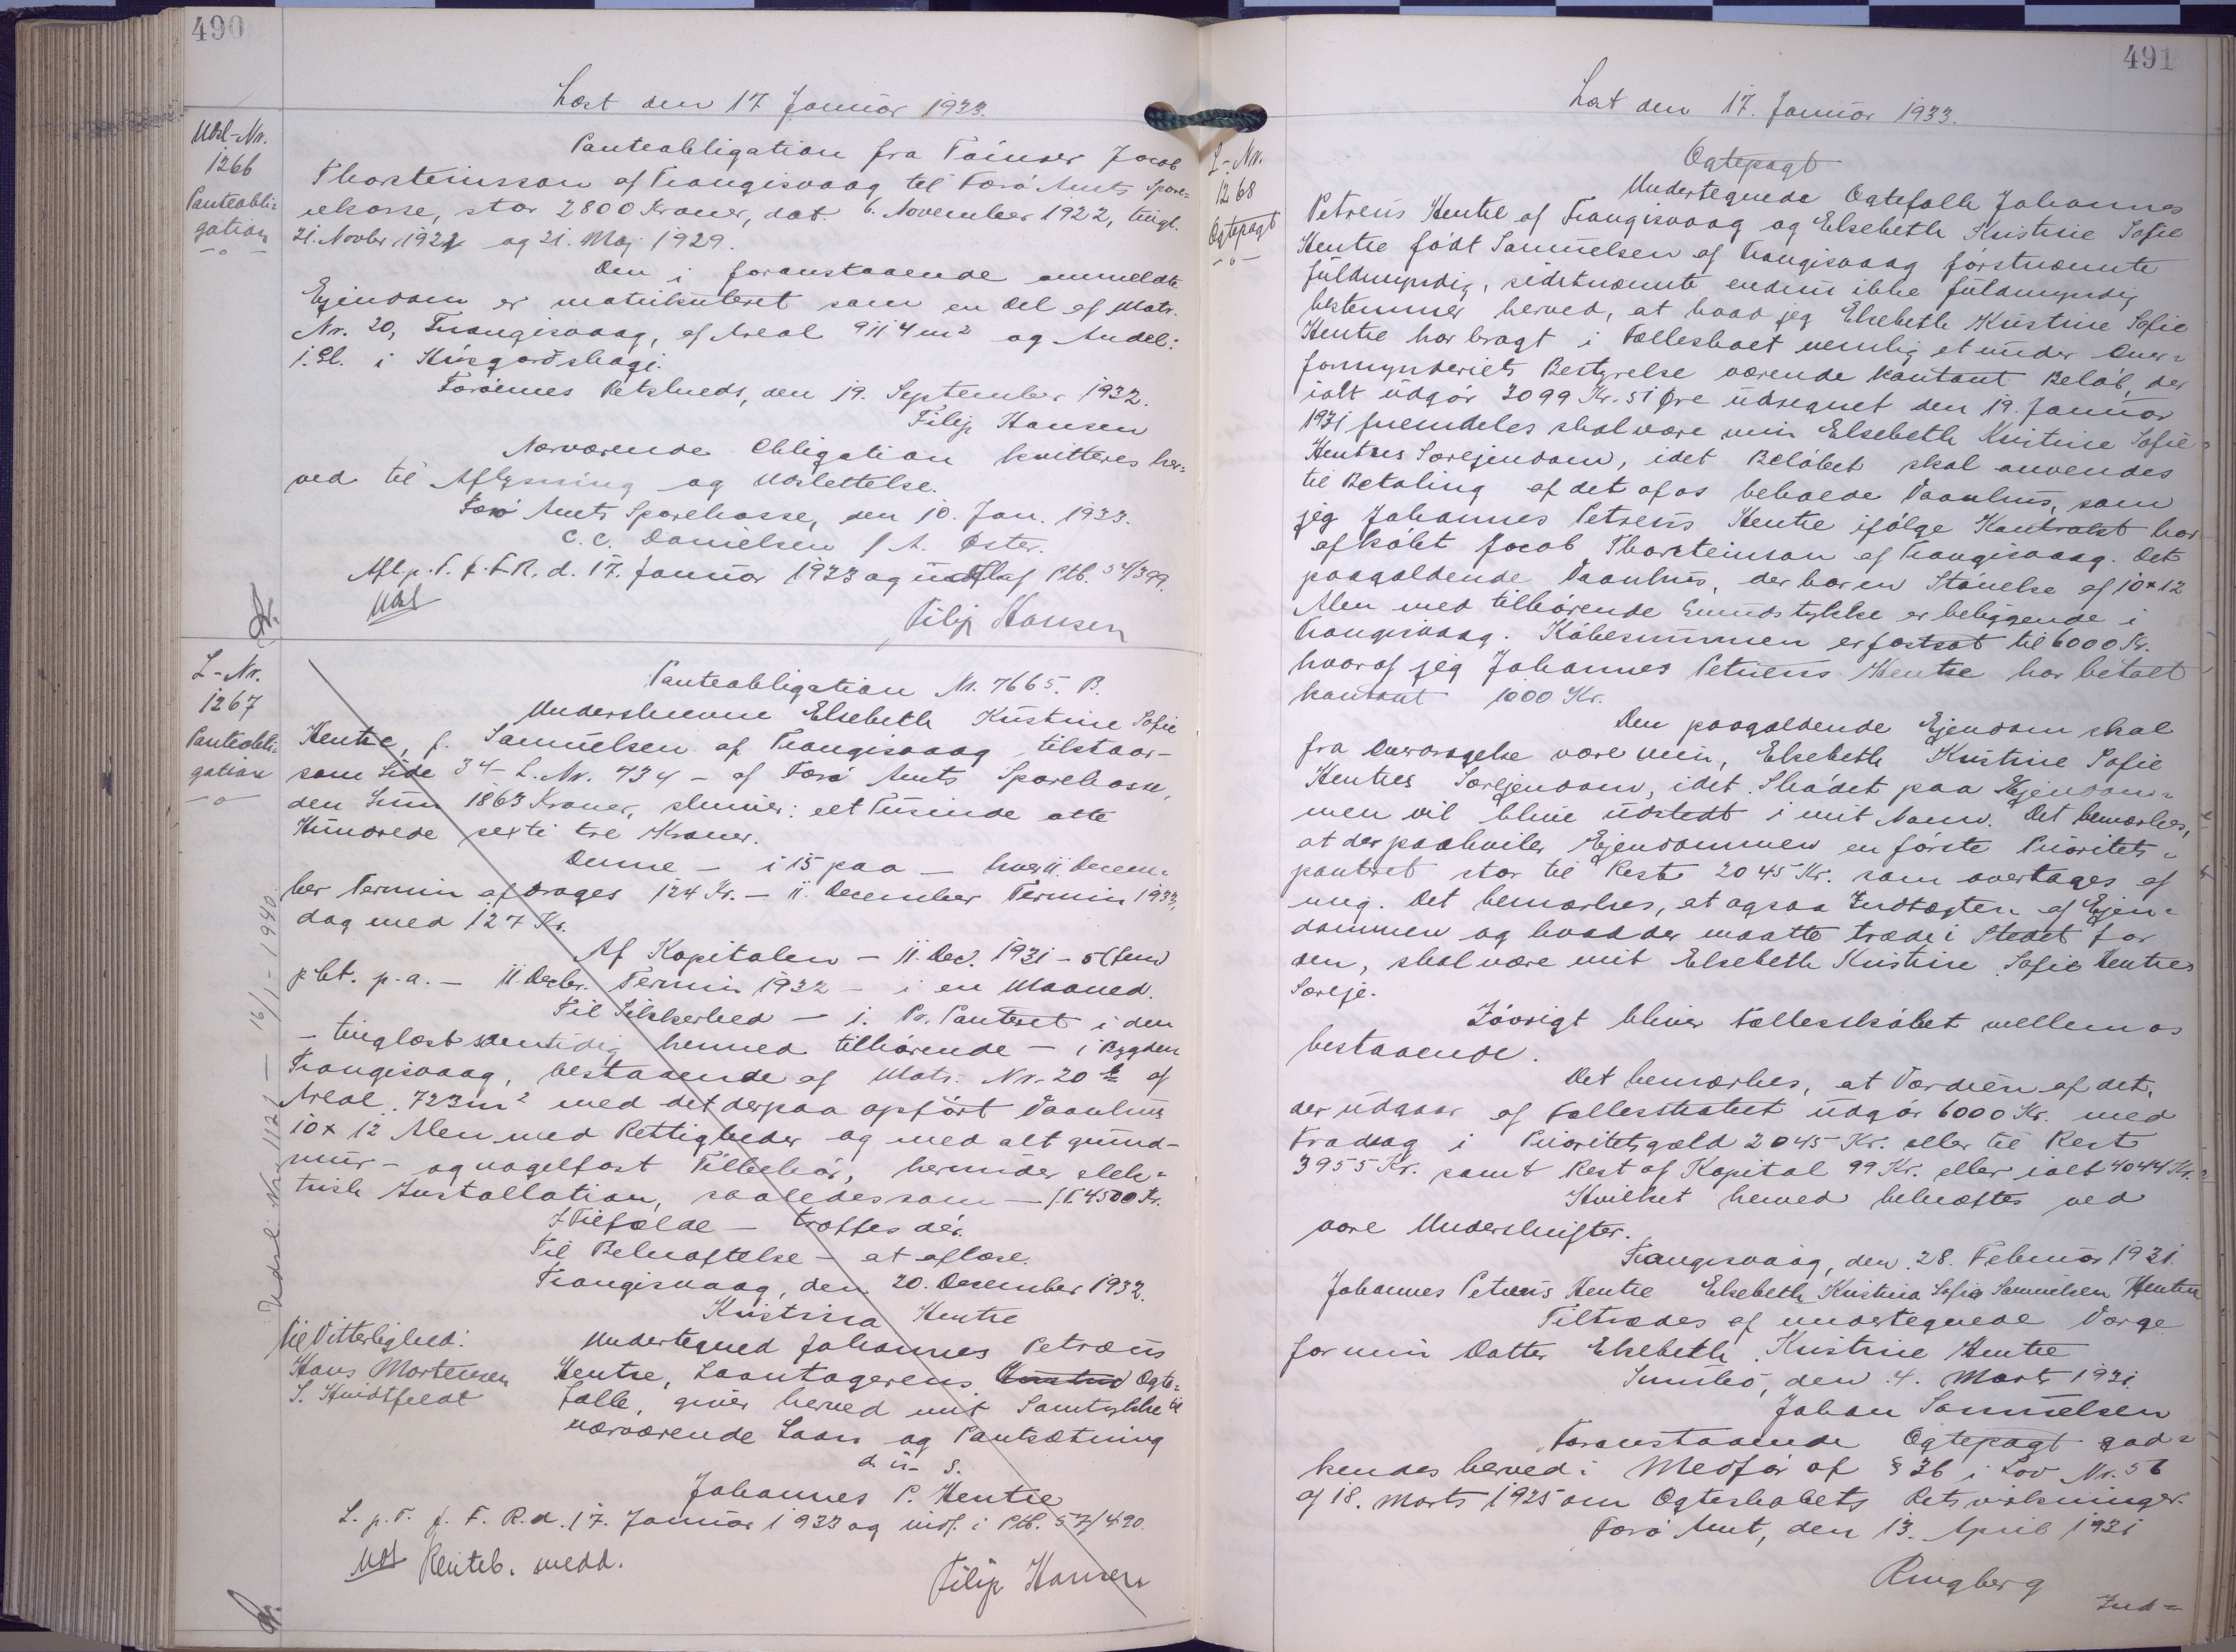 490
Læst den 17 Januar 1933.
Udsl-Nr.
1266
Panteobli=
gation
Panteobligation fra Tóinser Jacob
Thorsteinsson af Trangisvaag til Færö Amts Spare=
ekasse, stor 2800 Kroner, dat. 6. November 1922, tingl.
21. Novbr. 1922 og 21. Maj 1929.
Den i foranstaaende ommeldte
Ejendom er matrikuleret som en Del af Matr.
Nr. 20, Trangisvaag, af Areal 9114 m² og Andel:
1. Gl. i Húsgarðshagi.
Færöernes Retskreds, den 19. September 1932.
Filip Hansen
Nærværende Obligation kvitteres her=
ved til Aflysning og Udslettelse.
Færö Amts Sparekasse, den 10. Jan. 1933.
C. C. Danielsen / A. Öster.
Afl. p. T. f. F. R. d. 17. Januar 1933 og udsl. af Ptb. 54/399.
Udsl
Filip Hansen
L-Nr.
1267
Panteobli=
gation
Panteobligation Nr. 7665. B.
Underskrevne Elsebeth Kristine Sofie
Hentze, f. Samuelsen af Trangisvaag tilstaar -
som Side 34 - L. Nr. 734 - af Færö Amts Sparekasse,
den Sum 1863 Kroner, skriver: eet Tusinde otte
Hundrede sexti tre Kroner.
Denne - i 15 paa - hver 11. Decem=
ber Termin afdrages 124 Kr. - 11. December Termin 1933,
dog med 127 Kr.
Af Kapitalen - 11. Dec. 1931 - 5 (fem)
pCt. p. a. - 11. Decbr. Termin 1932 - i en Maaned.
Til Sikkerhed - 1. Pr. Panteret i den
- tinglæst samtidig hermed tilhörende - i Bygden
Trangisvaag, bestaaende af Matr. Nr. 20 b af
Areal 723 m² med det derpaa opfört Vaanhus
10 x 12 Alen med Rettigheder og med alt grund-
mur- og nagelfast Tilbehör, herunder elek=
trisk Installation, saaledes som - f. F. 4500 Kr.
I Tilfælde - træffes dér.
Til Bekræftelse - at aflæse.
Trangisvaag, den 20. December 1932.
Kristina Hentze
Til Vitterlighed:
Hans Mortensen
S. Hvidtfeldt
Undertegned Johannes Petræus
Hentze, Laantagerens Ægte=
fælle, giver herved mit Samtykke til
nærværende Laan og Pantsætning
d. u. s.
Johannes P. Hentze
L. p. T. f. F. R. d. 17. Januar 1933 og indf. i Ptb. 57/490.
Udf Renteb. medd.
Filip Hansen
Udsl. Nr. 1122 - 16/1 - 1940.
491
Læst den 17. Januar 1933.
L-Nr.
1268
Ægtepagt
Ægtepagt
Undertegnede Ægtefolk Johannes
Petreus Hentze af Trangisvaag og Elsebeth Kristine Sofie
Hentze födt Samuelsen af Trangisvaag förstnævnte
fuldmyndig, sidstnævnte endnu ikke fuldmyndig
bestemmer herved, at hvad jeg Elsebeth Kristine Sofie
Hentze har bragt i Fællesboet nemlig et under Over=
formynderiets Bestyrelse værende kontant Belöb, der
ialt udgör 3099 Kr. 51 Øre udregnet den 19. Januar
1931 fremdeles skal være min Elsebeth Kristine Sofie
Hentzes Særejendom, idet Belöbet skal anvendes
til Betaling af det af os beboede Vaanhus, som
jeg Johannes Petreus Hentze ifölge Kontrakt har
afköbt Jocob Thorsteinson af Trangisvaag. Det
paagældende Vaanhus, der har en Störrelse af 10 x 12
Alen med tilhörende Grundstykke er beliggende i
Trangisvaag. Köbesummen er fastsat til 6000 Kr.
hvoraf jeg Johannes Petreus Hentze har betalt
kontant 1000 Kr.
Den paagældende Ejendom skal
fra Overdragelse være min, Elsebeth Kristine Sofie
Hentzes Særejendom, idet Skødet paa Ejendom=
men vil blive udstedt i mit Navn. Det bemærkes,
at der paahviler Ejendommen en förste Prioritets=
panteret stor til Rest 2045 Kr. som overtages af
mig. Det bemærkes, at ogsaa Indtægten af Ejen=
dommen og hvad der maatte træde i Stedet for
den, skal være mit Elsebeth Kristine Sofie Hentzes
Særeje.
Iövrigt bliver Fællesskabet mellem os
bestaaende.
Det bemærkes, at Værdien af det,
der udgaar af Fællesskabet udgör 6000 Kr. med
Fradrag i Prioritetsgæld 2045 Kr. eller til Rest
3955 Kr. samt Rest af Kapital 99 Kr. eller ialt 4044 Kr.
Hvilket herved bekræftes ved
vore Underskrifter.
Trangisvaag, den 28. Februar 1931.
Johannes Petreus Hentze Elsebeth Kristina Sofia Samuelsen Hentze
Tiltrædes af undertegnede Værge
for min Datter Elsebeth Kristine Hentze
Sumbö, den 4. Marts 1931.
Johan Samuelsen
Foranstaaende Ægtepagt god=
kendes herved i Medför af § 36 i Lov Nr. 56
af 18. Marts 1925 om Ægteskabets Retsvirkninger.
Færö Amt, den 13. April 1931
Ringberg
Ind=